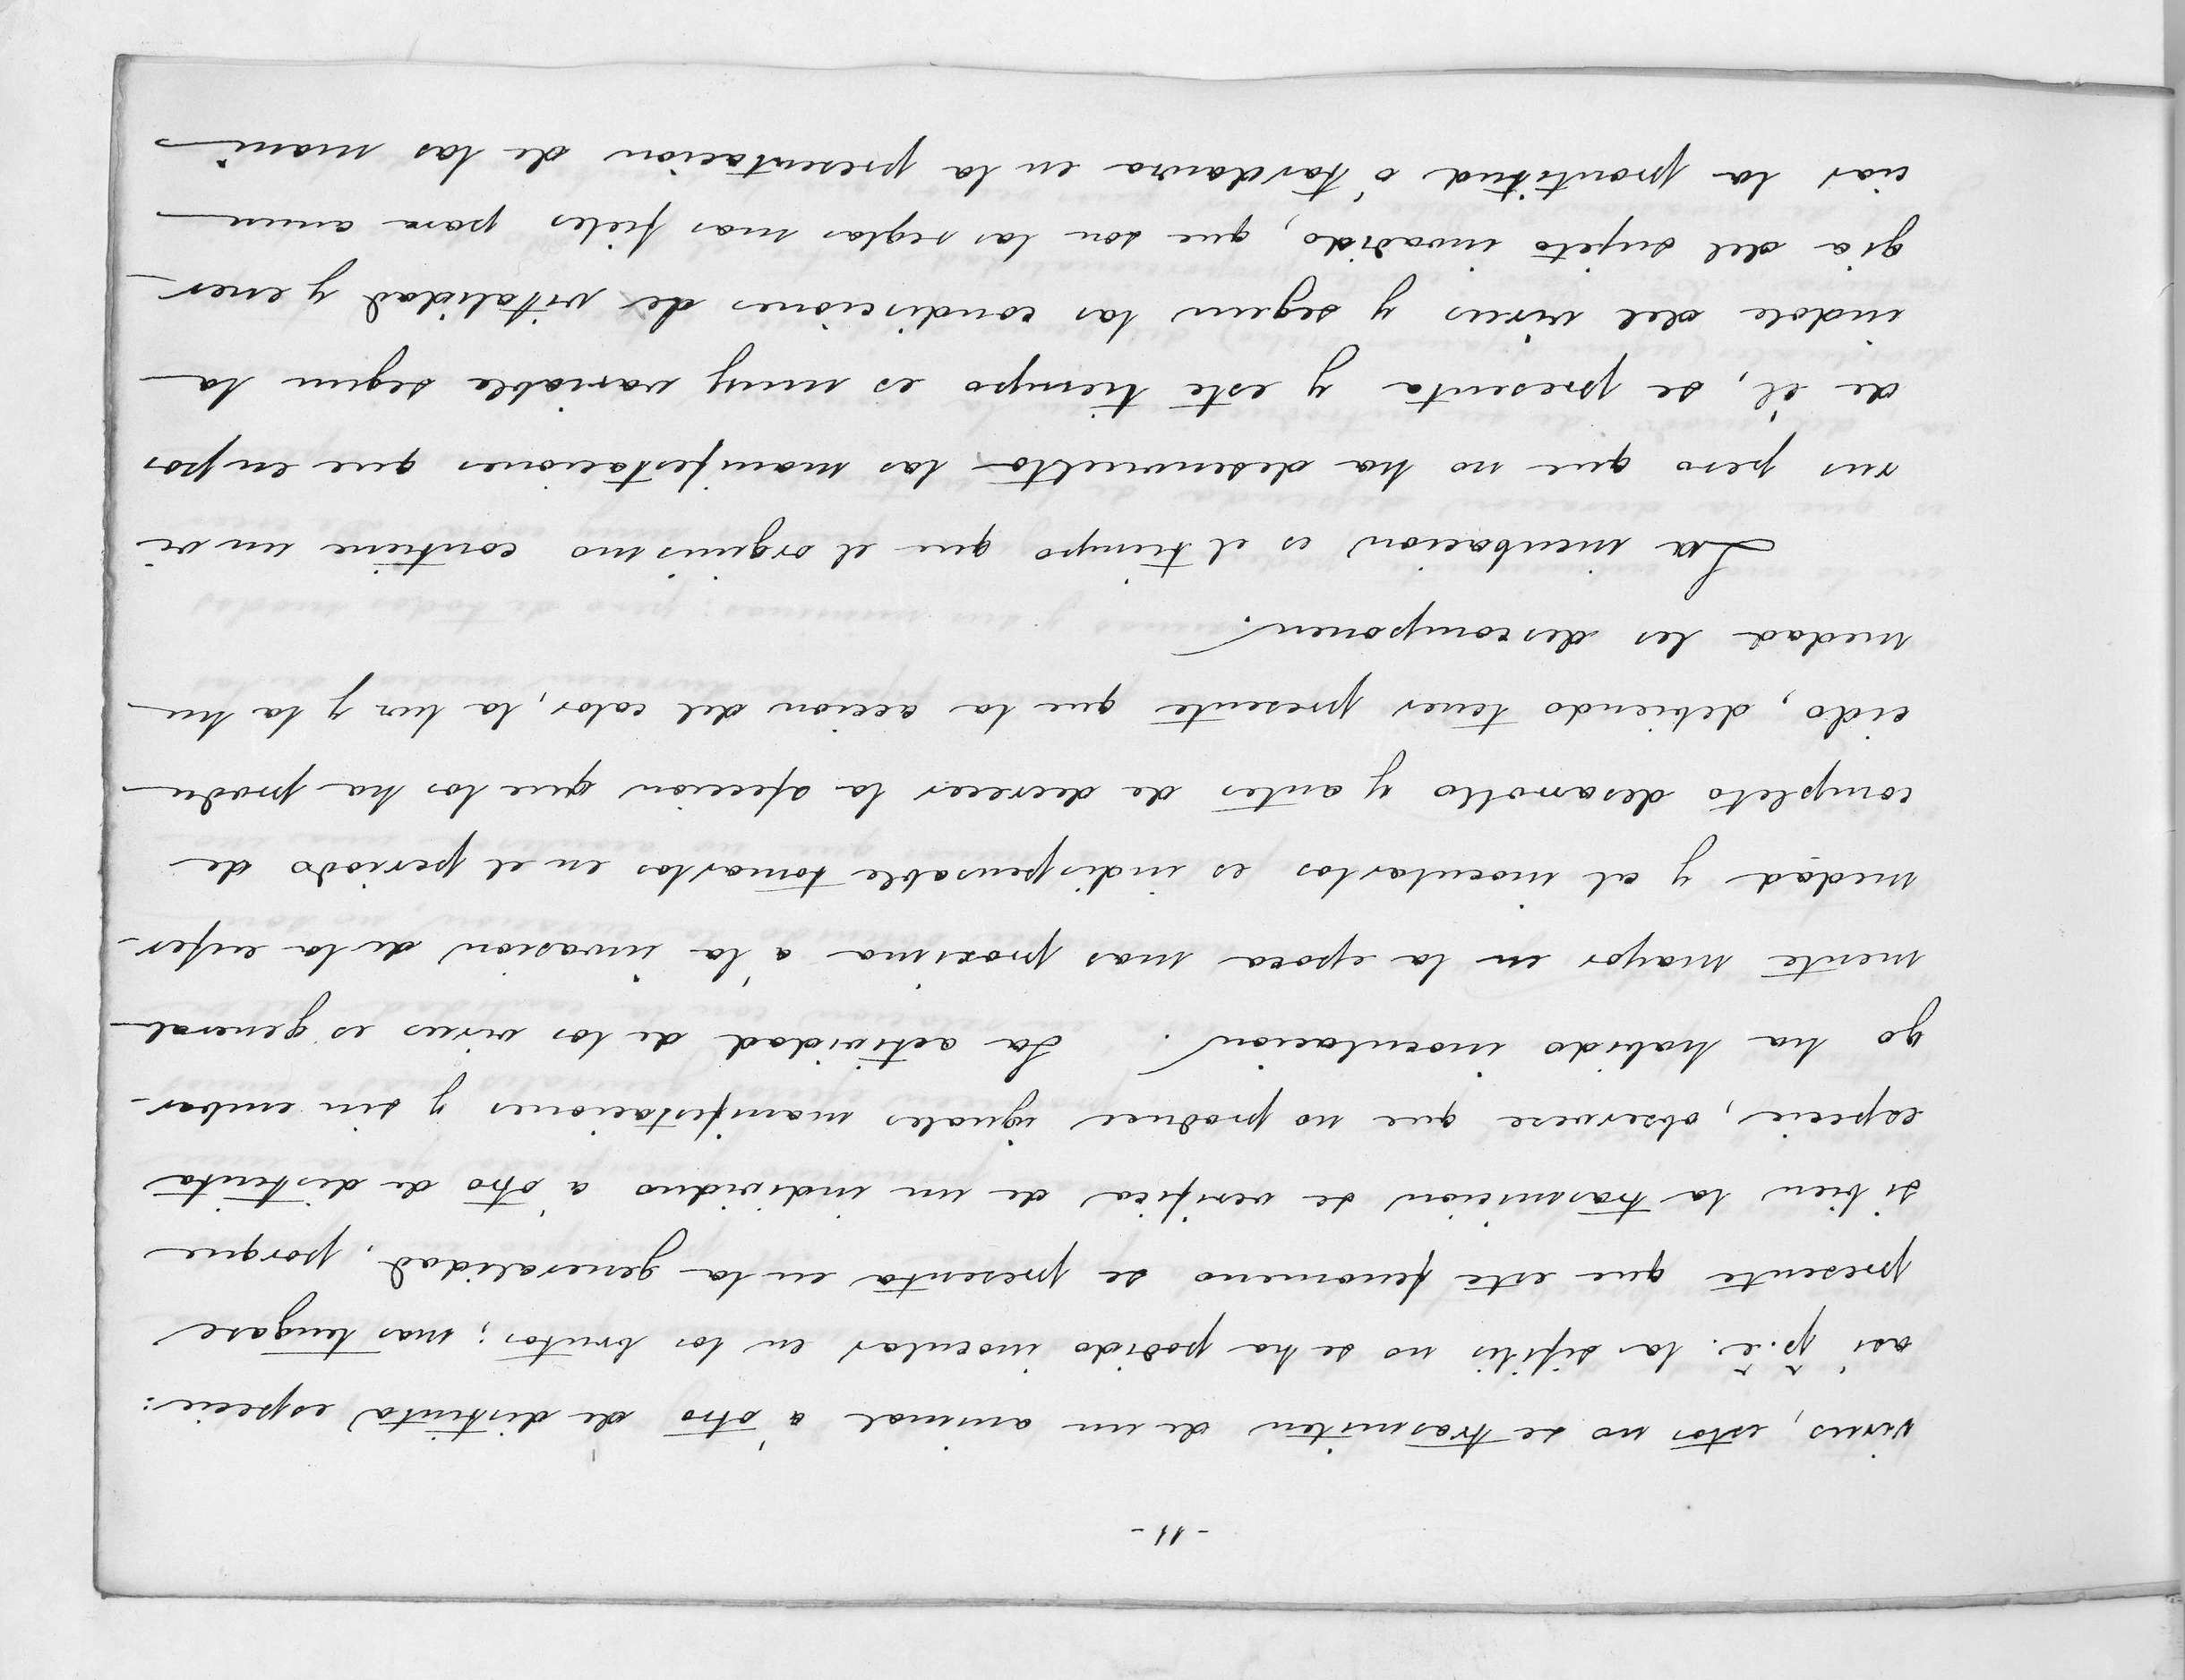 -11-
virus, estos no se trasmiten de un animal a otro de distinta especie:
asi p. e. la sifilis no se ha podido inocular en los brutos; mas tengase
presente que este fenomeno se presenta en la generalidad, porque
si bien la trasmicion se verifica de un individuo á otro de distinta
especie, observese que no produce iguales manifestaciones y sin embar-
go ha habido inoculacion. La actividad de los virus es general-
mente mayor en la epoca mas procsima á la invasion de la enfer-
medad y al inocularlos es indispensable tomarlos en el periodo de
completo desarrollo y antes de decrecer la afeccion que los ha produ-
cido, debiendo tener presente que la accion del calor, la luz y la hu-
medad les descomponen.
La incubacion es el tiempo que el orgnismo contiene un vi-
rus pero que no ha desenvuelto las manifestaciones que en pos
de él, se presenta y este tiempo es muy variable segun la
indole del virus y segun las condisciones de vitalidad y ener-
gia del sujeto invadido, que son las reglas mas fieles para anun-
ciar la prontitud ó tardanza en la presentacion de las mani-